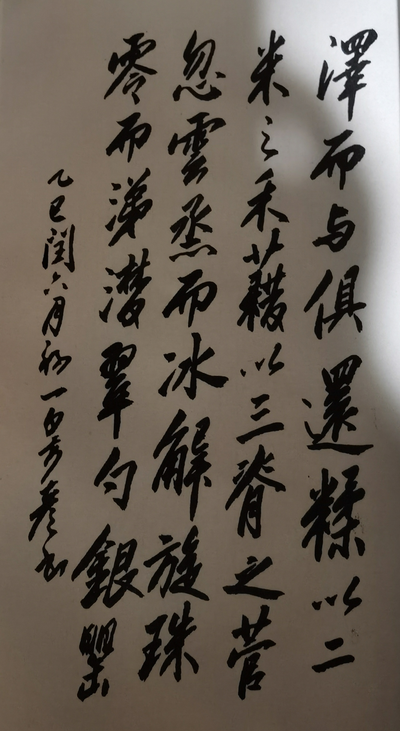 澤而与俱還糅以二
米之禾藉以三脊之菅
忽雲烝而冰解旋珠
零而涕潸翠勺銀罌
乙巳閏六月初一